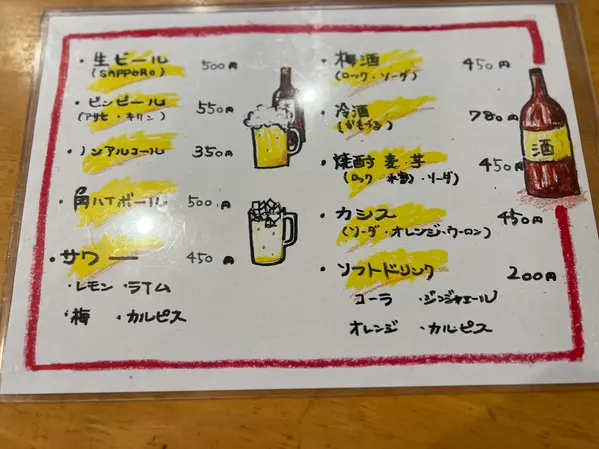 ・生ビール 500円
(SAPPORO)
・ビンビール 550円
(アサヒ・キリン)
・ノンアルコール 350円
・角ハイボール 500円
・サワー 450円
・レモン ・ライム
・梅 ・カルピス
・梅酒 450円
(ロック・ソーダ)
・冷酒 780円
・焼酎 麦 芋 450円
(ロック・水割・ソーダ)
・カシス 450円
(ソーダ・オレンジ・ウーロン)
・ソフトドリンク 200円
コーラ ・ジンジャエール
オレンジ ・カルピス
酒